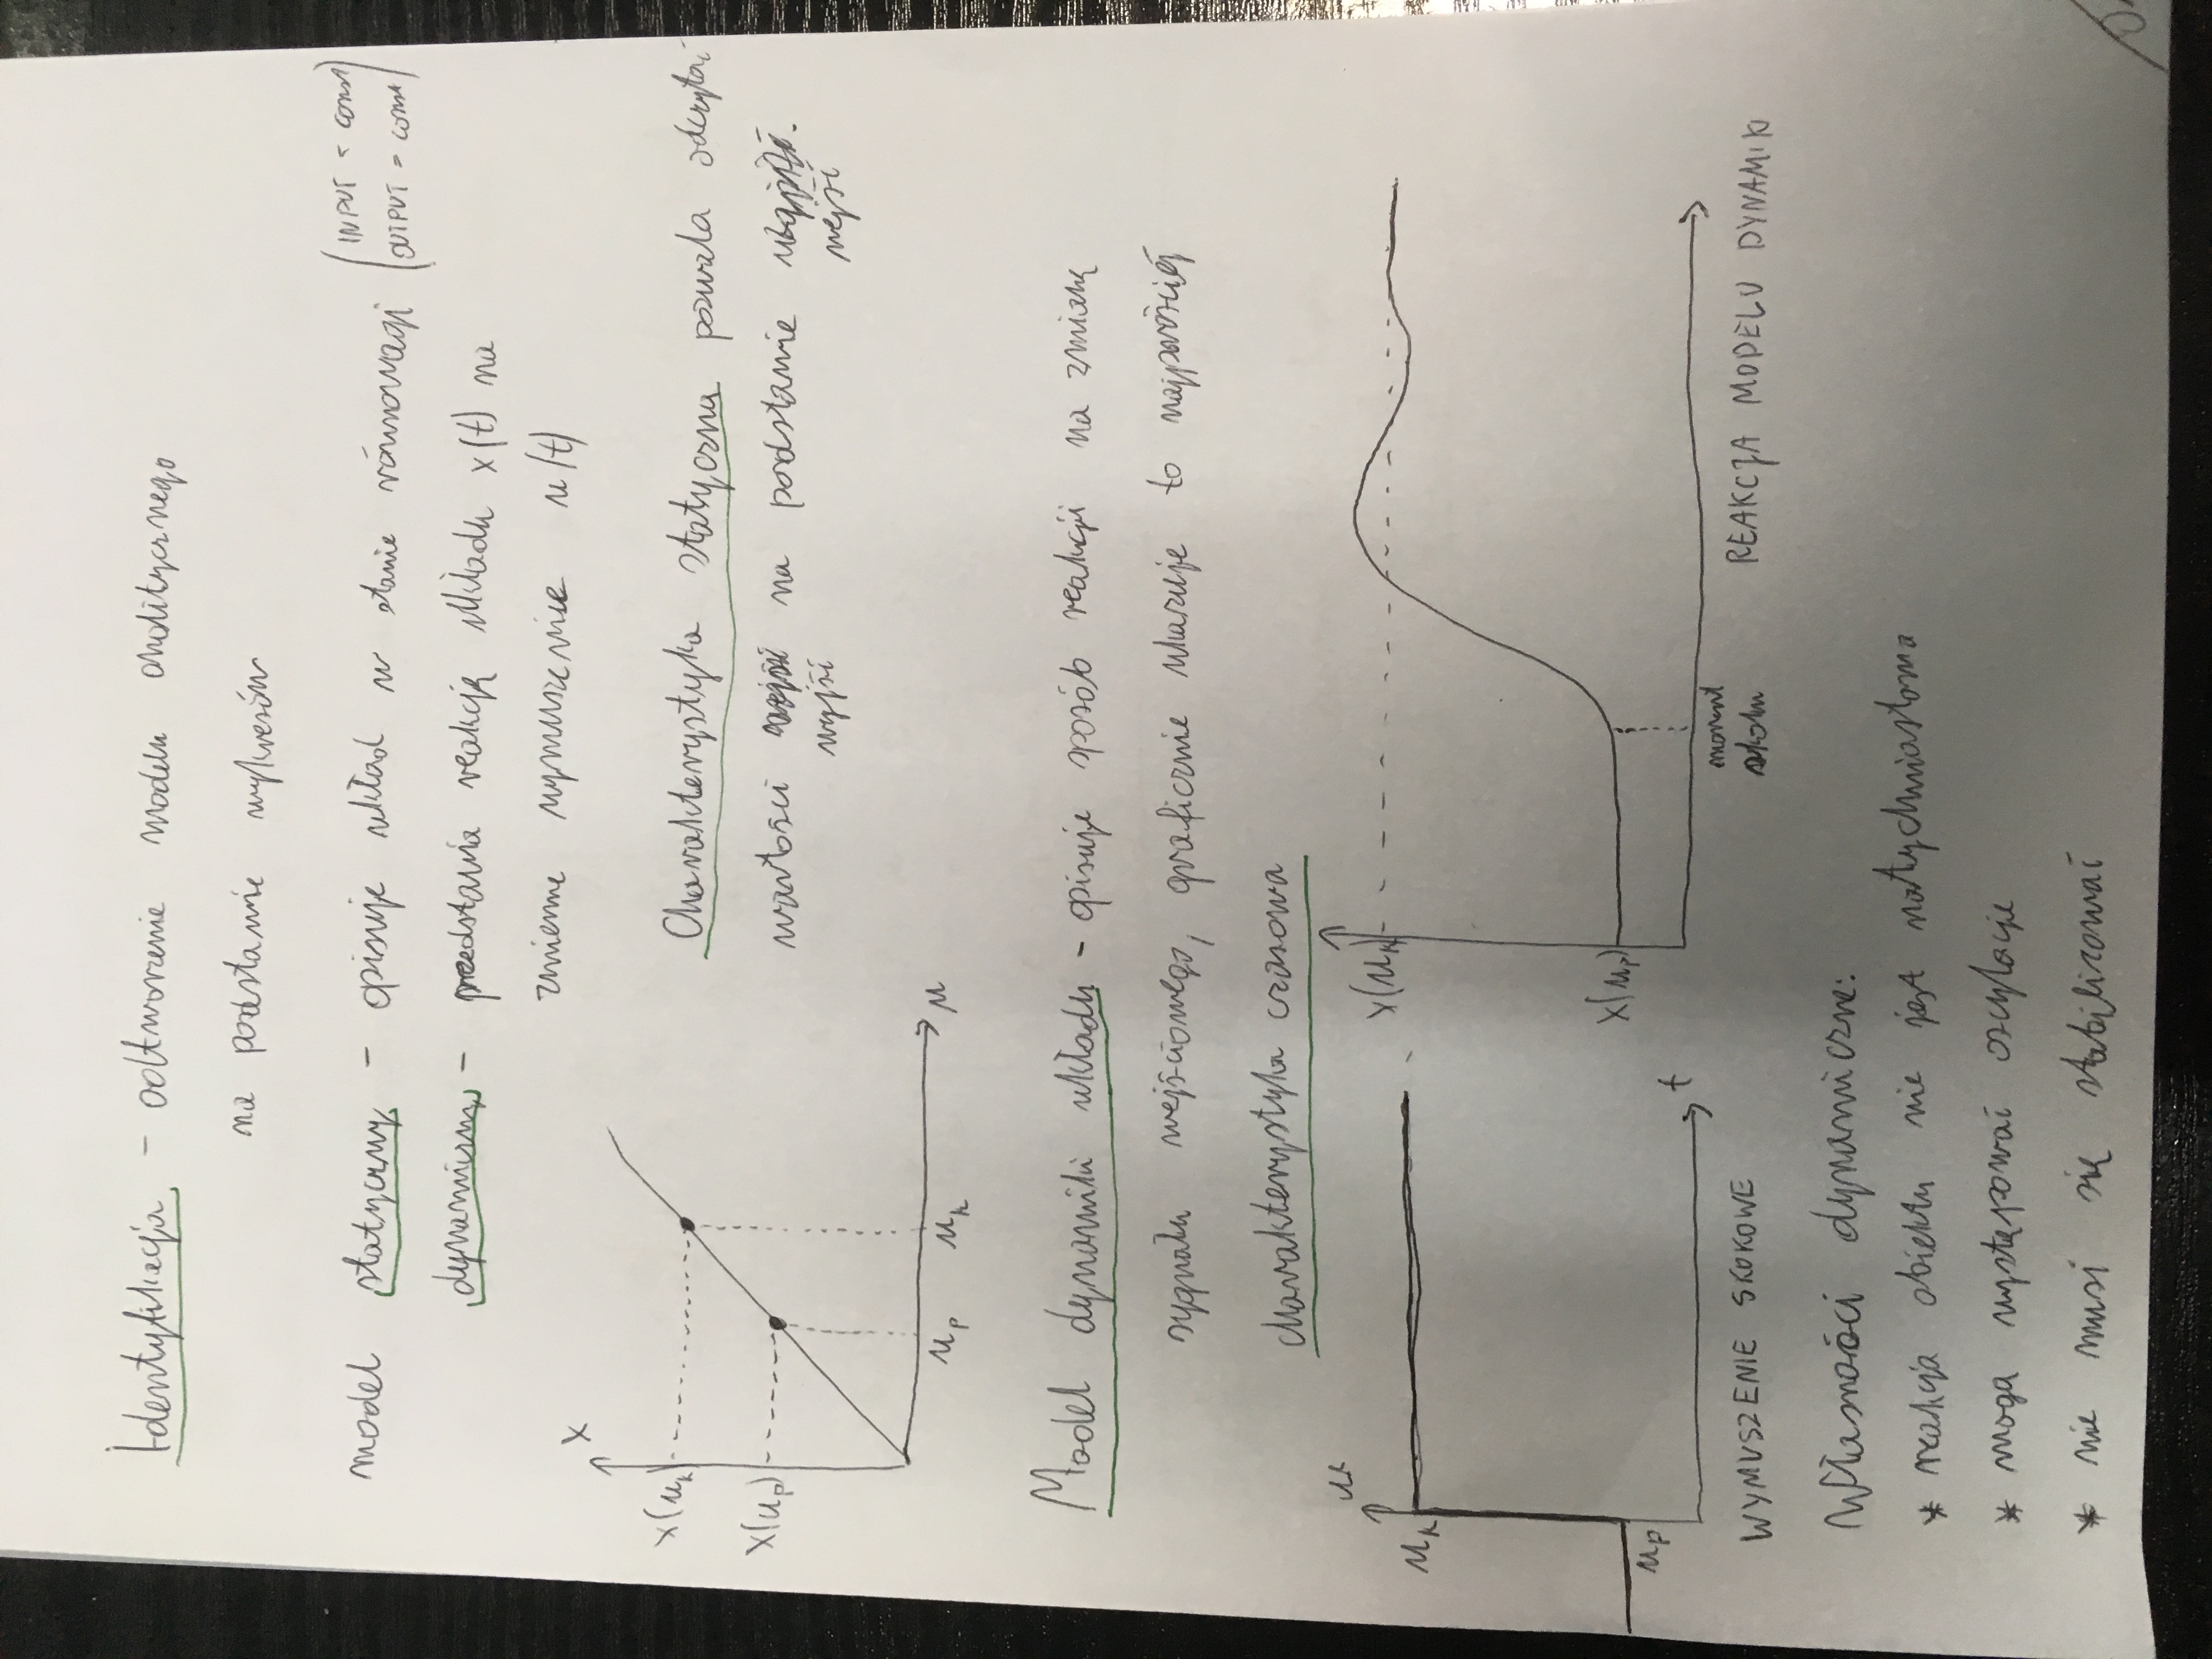 Identyfikacja - odtworzenie modelu analitycznego
na podstawie wykresów
model statyczny - opisuje układ w stanie równowagi (INPUT = const
OUTPUT = const)
dynamiczny - przedstawia reakcję układu x(t) na
zmienne wymuszenie u(t)
x
x(uk)
x(up)
up uk u
Charakterystyka statyczna pozwala odczytać
wartości wyjść na podstawie wejść.
Model dynamiki układu - opisuje sposób reakcji na zmianę
sygnału wejściowego, graficznie ukazuje to najprościej
charakterystyka czasowa
u
uk
up
t
WYMUSZENIE SKOKOWE
x(uk)
x(up)
moment
skoku
REAKCJA MODELU DYNAMIKI
Własności dynamiczne:
* reakcja obiektu nie jest natychmiastowa
* moga występować oscylacje
* nie musi się stabilizować